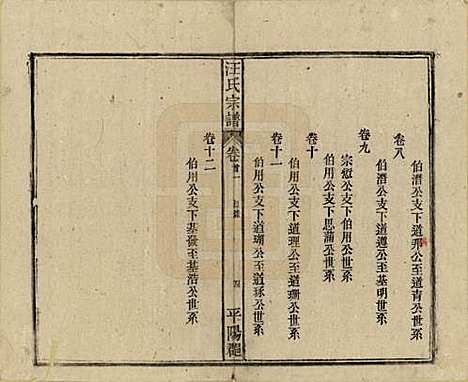 卷八
伯潛公支下道
公至道青公世系
卷九
伯潛公支下道遵公至基明世系
宗愷公支下伯用公世系
卷十
伯用公支下思蒲公世系
卷十一
伯用公支下道理公至道珊公世系
伯用公支下道瑚公至道琢公世系
汪氏宗譜
卷首
目錄
四
平陽郡
卷十二
伯用公支下基嶽至基浩公世系